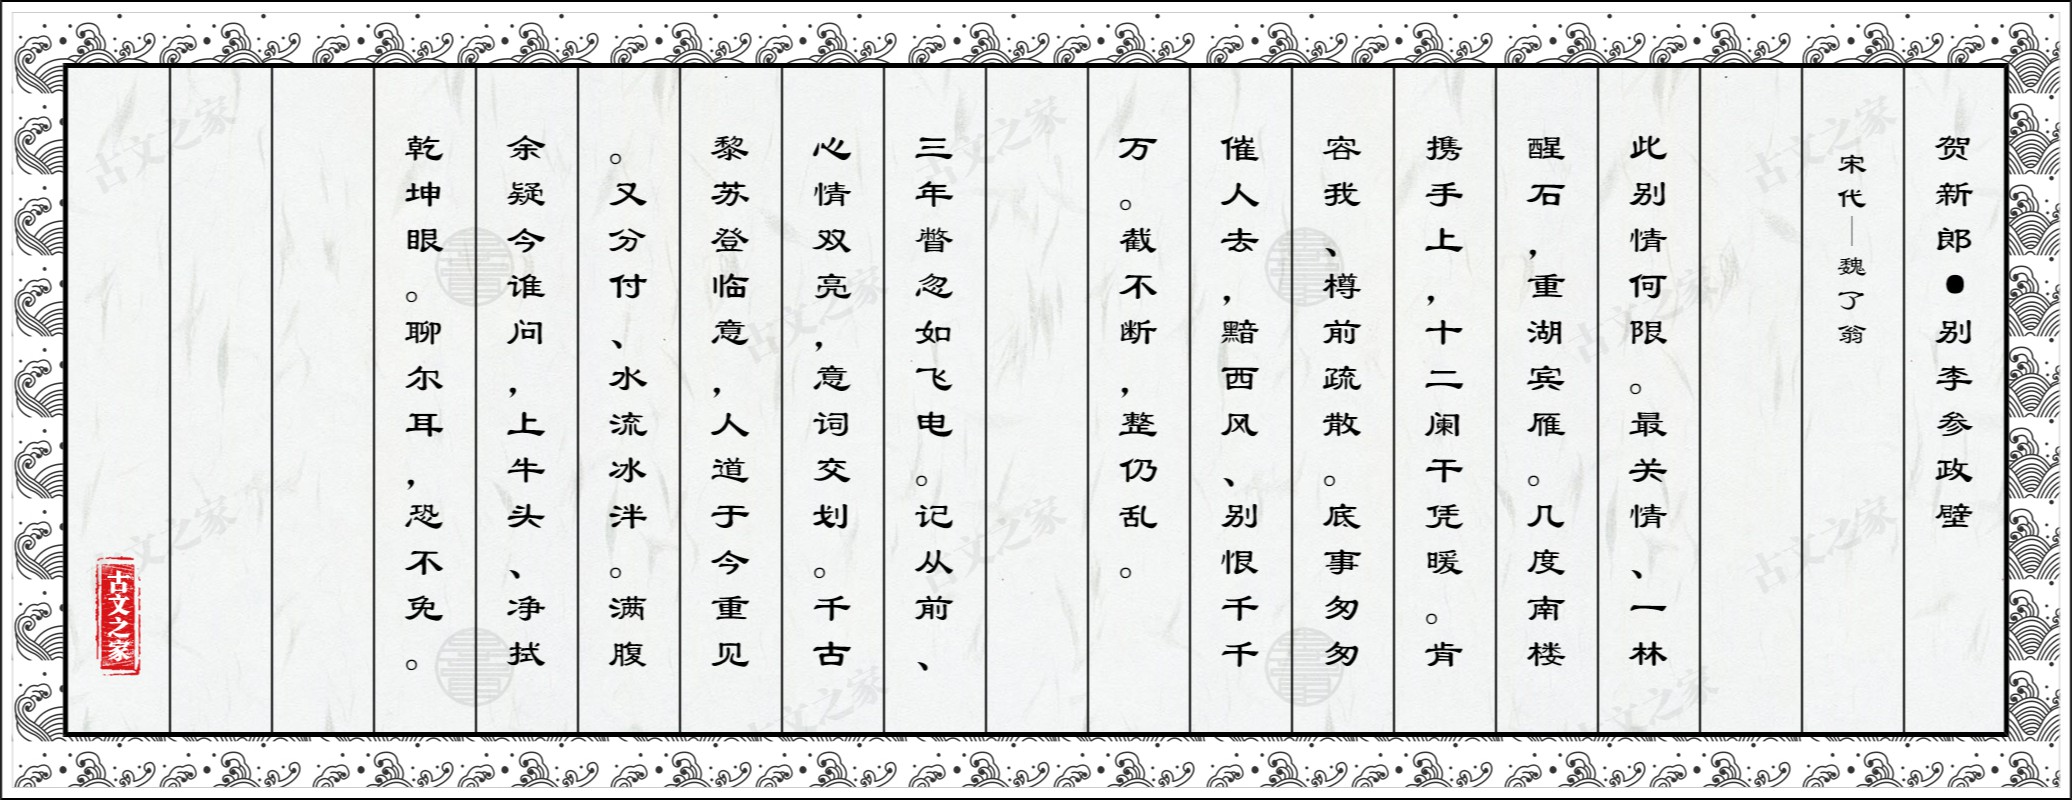 贺新郎●别李参政壁
宋代—魏了翁
此别情何限。最关情、一林
醒石，重湖宾雁。几度南楼
携手上，十二阑干凭暖。肯
容我、樽前疏散。底事匆匆
催人去，黯西风、别恨千千
万。截不断，整仍乱。
三年瞥忽如飞电。记从前、
心情双亮，意词交划。千古
黎苏登临意，人道于今重见
。又分付、水流冰泮。满腹
余疑今谁问，上牛头、净拭
乾坤眼。聊尔耳，恐不免。
古文之家